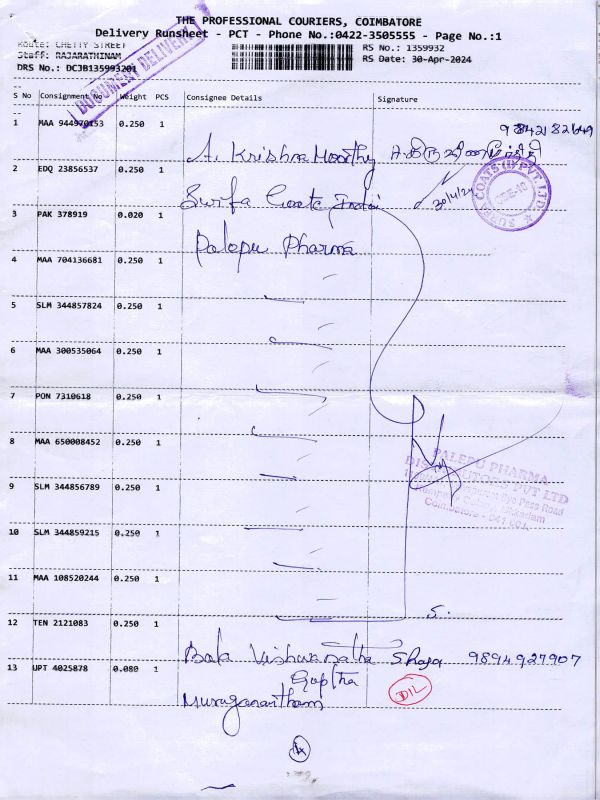 THE PROFESSIONAL COURIERS, COIMBATORE
Delivery Runsheet - PCT - Phone No.:0422-3505555 - Page No.:1
Route: CHETTY STREET
RS No.: 1359932
Staff: RAJARATHINAM
RS Date: 30-Apr-2024
DRS No.: DCJB135993201
DOCUMENT DELIVERY
S No Consignment No Weight PCS Consignee Details Signature
1 MAA 944970153 0.250 1
A. Krishna Moorthy
2 EDQ 23856537 0.250 1
Surfa Coats India 30/4/24
SURFA COATS (I) PVT LTD.
3 PAK 378919 0.020 1
Palepu Pharma
4 MAA 704136681 0.250 1
5 SLM 344857824 0.250 1
6 MAA 300535064 0.250 1
7 PON 7310618 0.250 1
8 MAA 650008452 0.250 1
PALEPU PHARMA
DISTRIBUTORS PVT LTD
Bye Pass Road
9 SLM 344856789 0.250 1
Coimbatore - 641
10 SLM 344859215 0.250 1
11 MAA 108520244 0.250 1
12 TEN 2121083 0.250 1
S.
Bala Vishwanatha Shaja 9894927907
Guptha
13 UPT 4025878 0.080 1
Muruganantham
DIL